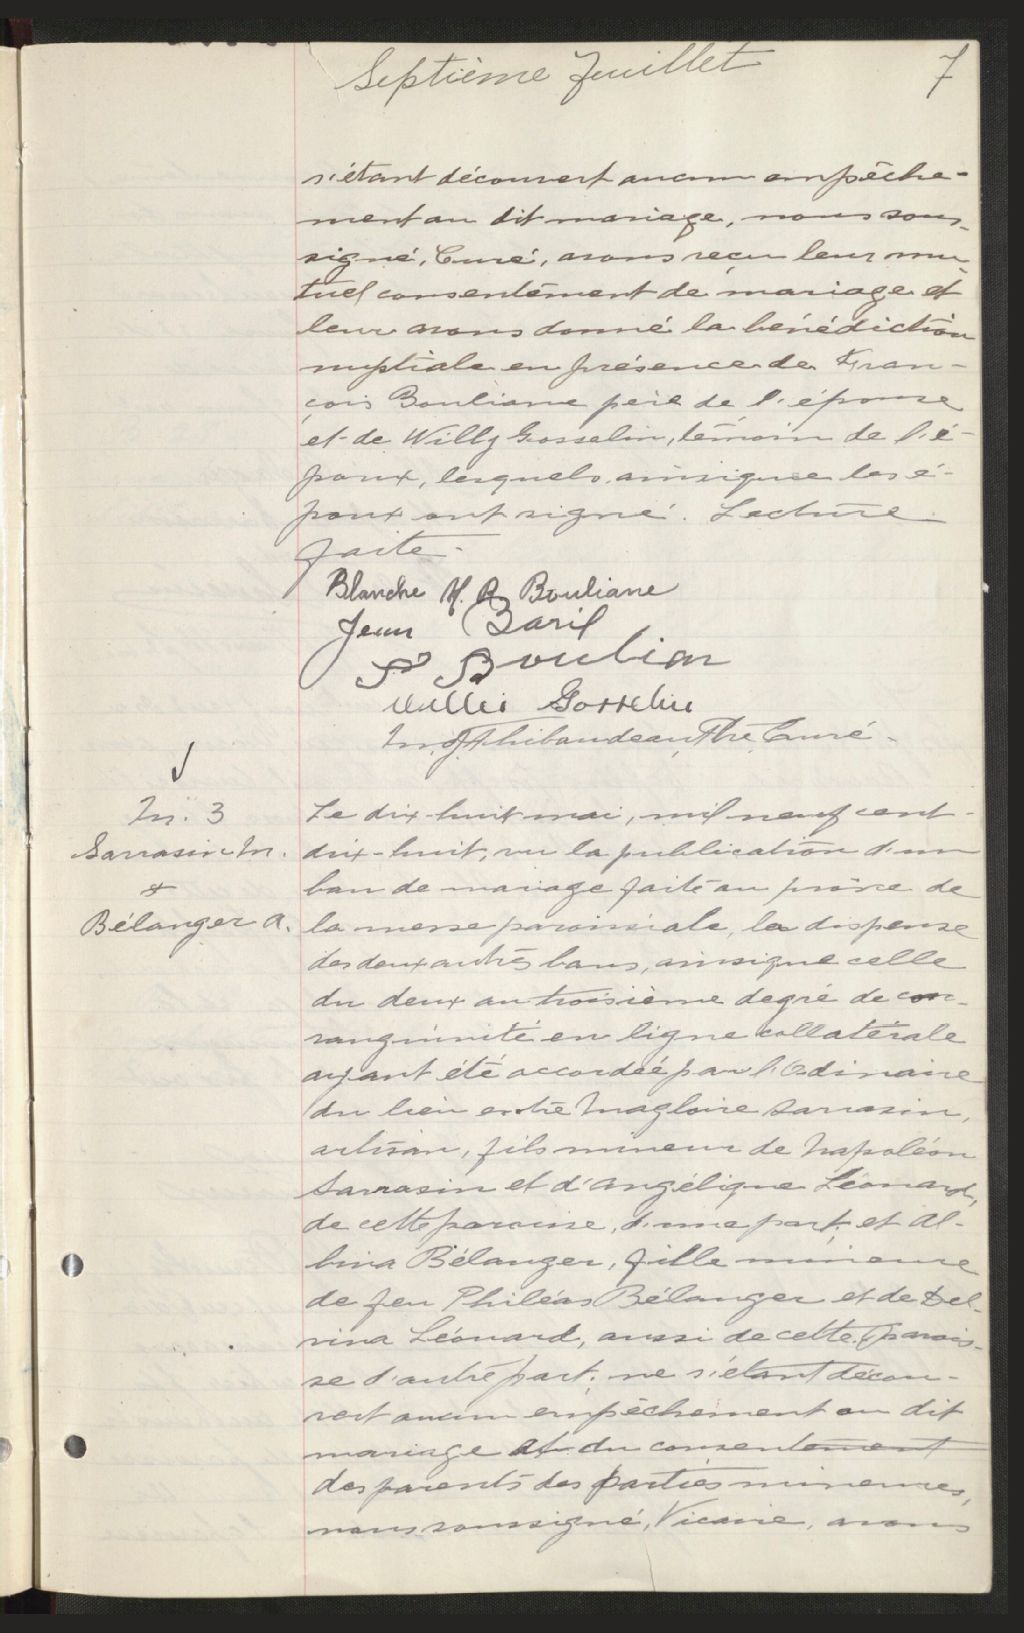 Septième feuillet 7
s'étant découvert aucun empêche-
ment au dit mariage, nous sous-
signé, Curé, avons reçu leur mu-
tuel consentement de mariage et
leur avons donné la bénédiction
nuptiale en présence de Fran-
çois Bouliane père de l'épouse
et de Willy Gosselin, témoin de l'é-
poux, lesquels ainsique les é-
poux ont signé. Lecture
faite.
Blanche M. R. Bouliane
Jean Baril
Boulian
Willie Gosselin
Thibaudeau, Ptre Curé.
M. 3
Sarrasin M.
&
Bélanger A.
Le dix-huit mai, mil neuf cent-
dix-huit, vu la publication d'un
ban de mariage faite au prône de
la messe paroissiale, la dispense
des deux autres bans, ainsique celle
du deux au troisième degré de con-
sanguinité en ligne collatérale
ayant été accordée par l'Odinaire
du lieu entre Magloire Sarrasin,
artisan, fils mineur de Napoléon
Sarrasin et d'Angélique Léonard,
de cette paroisse, d'une part; et Al-
bina Bélanger, fille mineure
de feu Philéas Bélanger et de Del-
vina Léonard, aussi de cette parois-
se d'autre part; ne s'étant décou-
vert aucun empêchement au dit
mariage et du consentement
des parents des parties mineures,
nous soussigné, Vicaire, avons